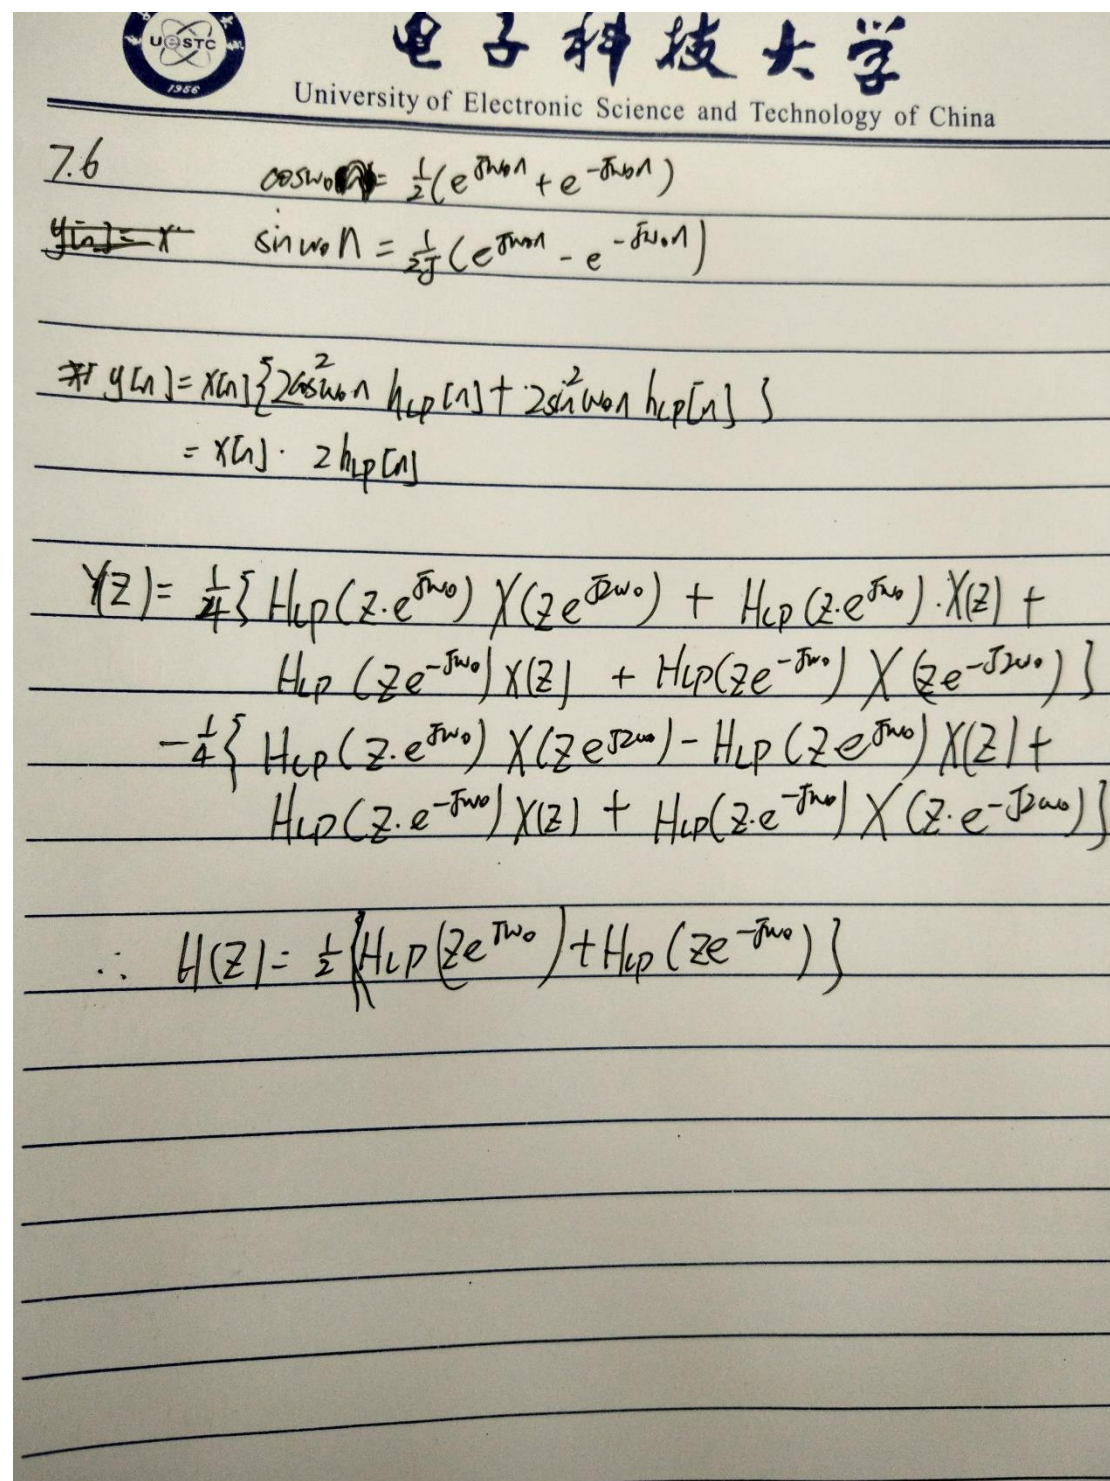 UESTC
1956
电子科技大学
University of Electronic Science and Technology of China
7.6 cosω₀n = ½(e^{jω₀n} + e^{-jω₀n})
y[n] = x sinω₀n = 1/2j (e^{jω₀n} - e^{-jω₀n})
y[n] = x[n]{2cos²ω₀n h_{LP}[n] + 2sin²ω₀n h_{LP}[n]}
= x[n]· 2h_{LP}[n]
Y(Z) = ¼{H_{LP}(z·e^{jω₀}) X(ze^{j2ω₀}) + H_{LP}(z·e^{jω₀})·X(z) +
H_{LP}(ze^{-jω₀})X(z) + H_{LP}(ze^{-jω₀}) X(ze^{-j2ω₀})}
-¼{H_{LP}(z·e^{jω₀}) X(ze^{j2ω₀}) - H_{LP}(ze^{jω₀})X(z) +
H_{LP}(z·e^{-jω₀})X(z) + H_{LP}(z·e^{-jω₀})X(z·e^{-j2ω₀})}
∴ H(Z) = ½{H_{LP}(ze^{jω₀}) + H_{LP}(ze^{-jω₀})}